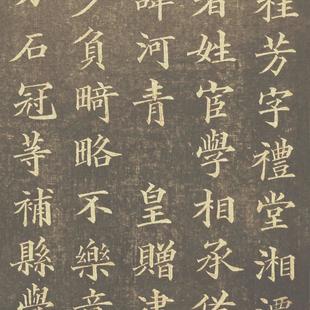 芳字禮堂湘潭
著姓宦學相承
河青 皇贈建
負畸略不樂章
石冠等補縣學